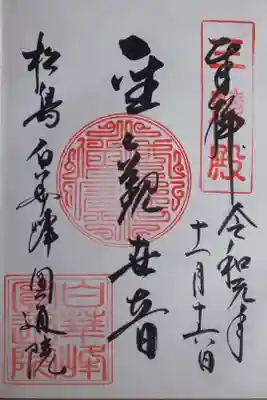 三慧殿
奉拝 令和元年
十一月十六日
聖觀世音
松島 白華峰 圓通院
白華峰
圓通院